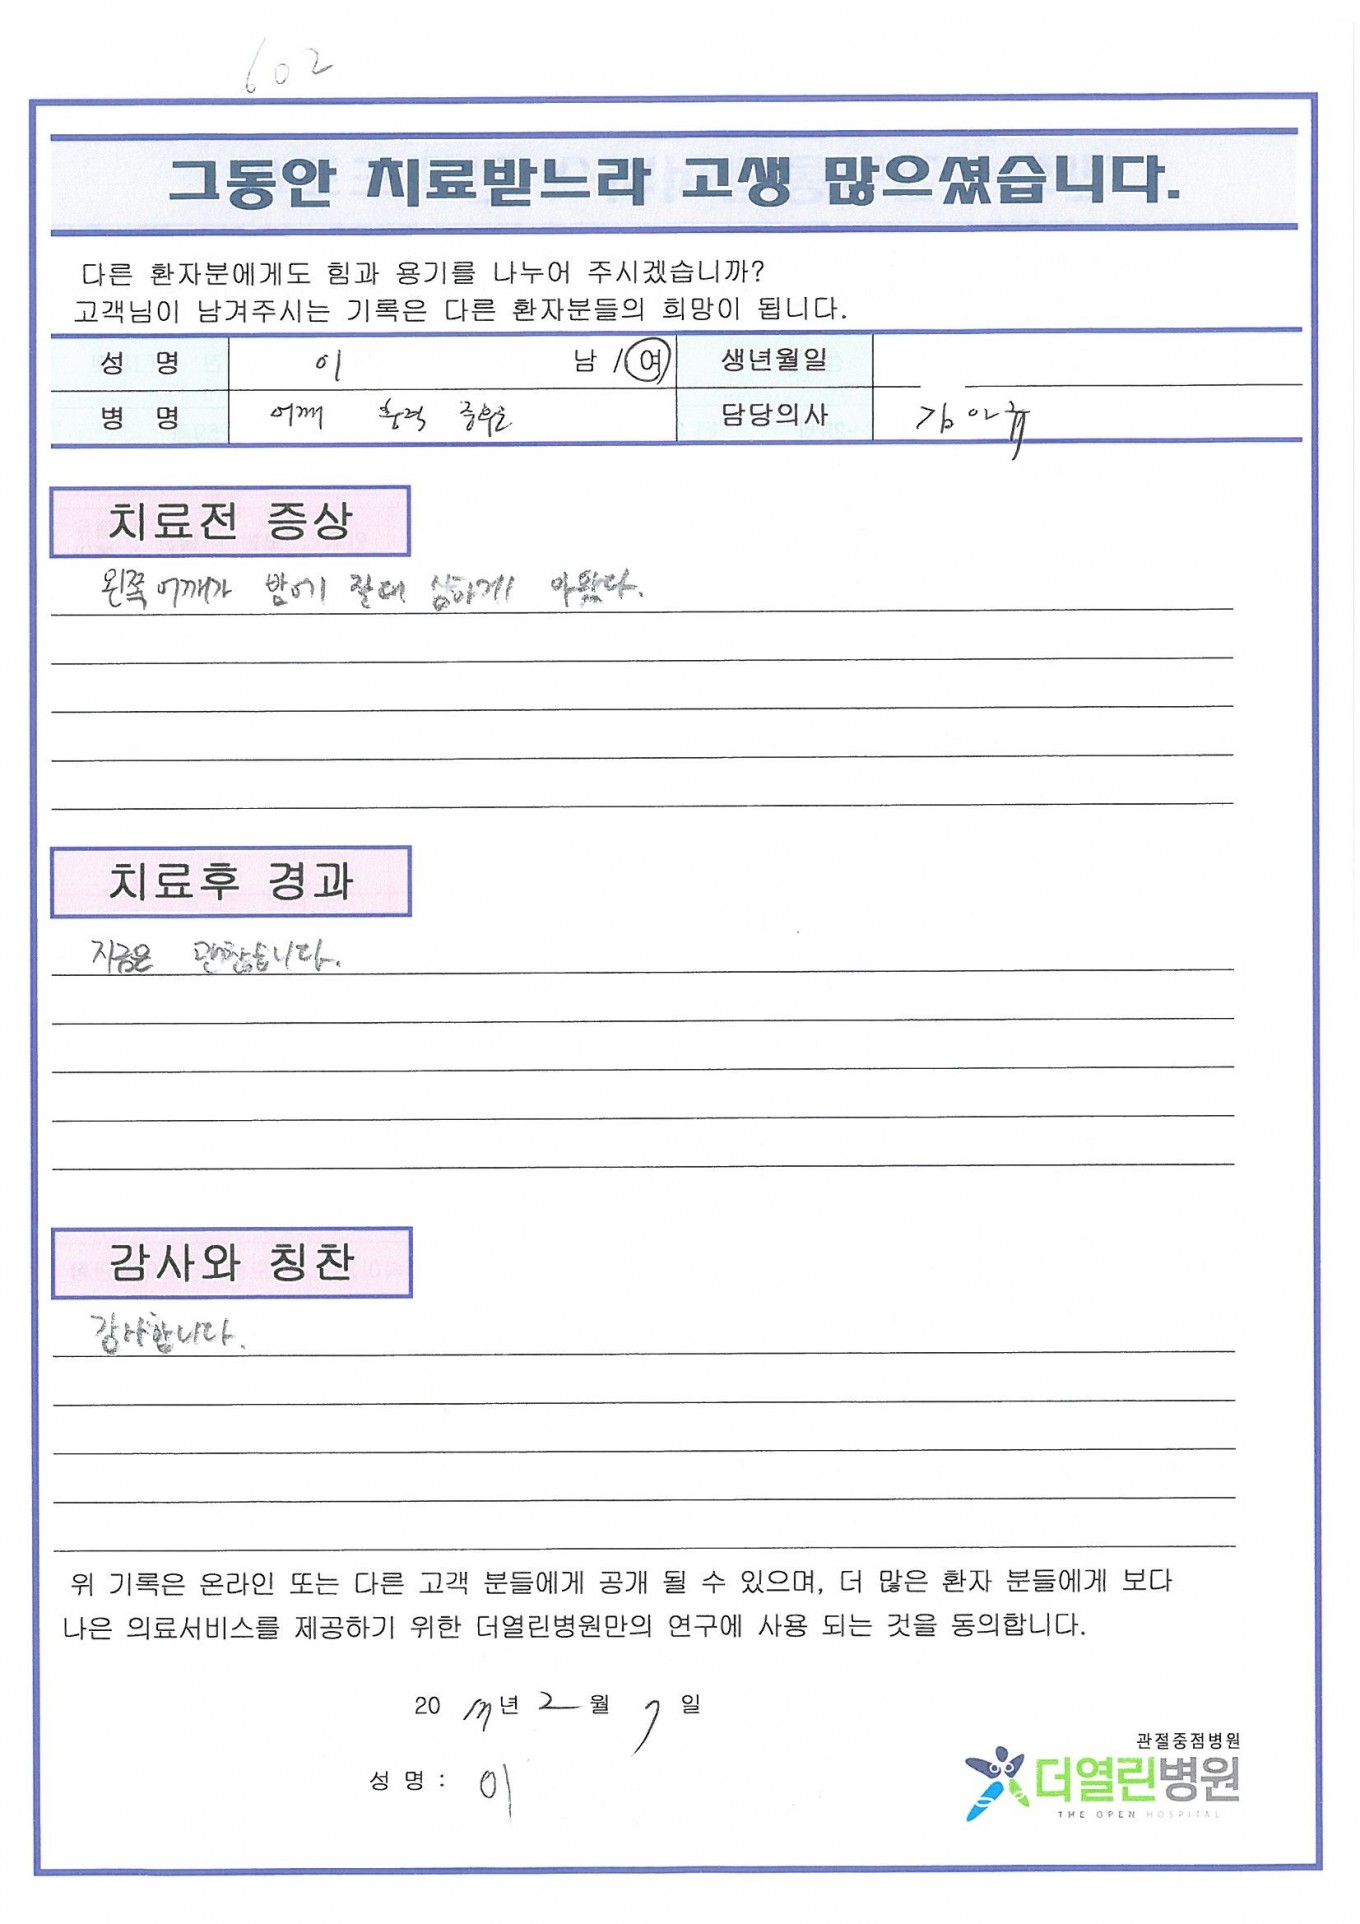 602
그동안 치료받느라 고생 많으셨습니다.
다른 환자분에게도 힘과 용기를 나누어 주시겠습니까?
고객님이 남겨주시는 기록은 다른 환자분들의 희망이 됩니다.
성 명 이 남 / 여 생년월일
병 명 어깨 담당의사
치료전 증상
왼쪽 어깨가 밤에 잘때 심하게 아팠다.
치료후 경과
지금은 괜찮습니다.
감사와 칭찬
감사합니다.
위 기록은 온라인 또는 다른 고객 분들에게 공개 될 수 있으며, 더 많은 환자 분들에게 보다
나은 의료서비스를 제공하기 위한 더열린병원만의 연구에 사용 되는 것을 동의합니다.
20 년 2 월 7 일
성 명 : 이
관절중점병원
더열린병원
THE OPEN HOSPITAL